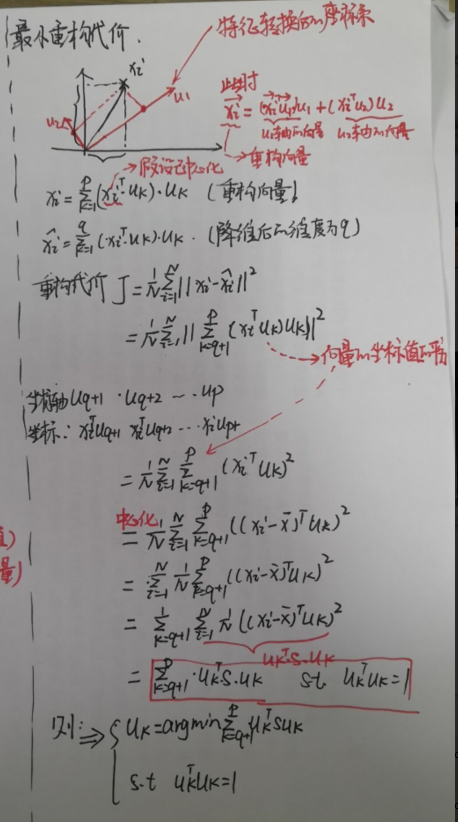 最小重构代价.
特征转换后的座标系
xi
u2
u1
此时
xi = (xiᵀu1)u1 + (xiᵀu2)u2
u1轴向的向量 u2轴向的向量
重构向量
假设已中心化
xi = Σ_{k=1}^{p} (xiᵀ·uk)·uk (重构向量)
x̂i = Σ_{k=1}^{q} (xiᵀ·uk)·uk. (降维后的维度为q)
重构代价 J = 1/N Σ_{i=1}^{N} ||xi - x̂i||²
= 1/N Σ_{i=1}^{N} ||Σ_{k=q+1}^{p} (xiᵀuk)uk||²
向量的坐标值的平方
坐标轴 uq+1 · uq+2 ··· up
坐标: xiᵀuq+1 xiᵀuq+2 ··· xiᵀup
= 1/N Σ_{i=1}^{N} Σ_{k=q+1}^{p} (xiᵀuk)²
中心化
= 1/N Σ_{i=1}^{N} Σ_{k=q+1}^{p} ((xi - x̄)ᵀuk)²
= Σ_{i=1}^{N} 1/N Σ_{k=q+1}^{p} ((xi - x̄)ᵀuk)²
= Σ_{k=q+1}^{p} Σ_{i=1}^{N} 1/N ((xi - x̄)ᵀuk)²
ukᵀ·S·uk
= Σ_{k=q+1}^{p} · ukᵀS·uk s.t ukᵀuk=1
量)
则: ⇒ { uk = argmin Σ_{k=q+1}^{p} ukᵀSuk
s.t ukᵀuk=1